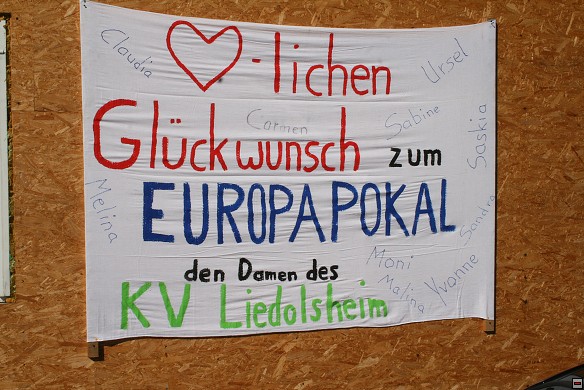 ♥-lichen
Glückwunsch zum
EUROPAPOKAL
den Damen des
KV Liedolsheim
Claudia
Ursel
Carmen
Sabine
Saskia
Melina
Sandra
Moni
Malina
Yvonne